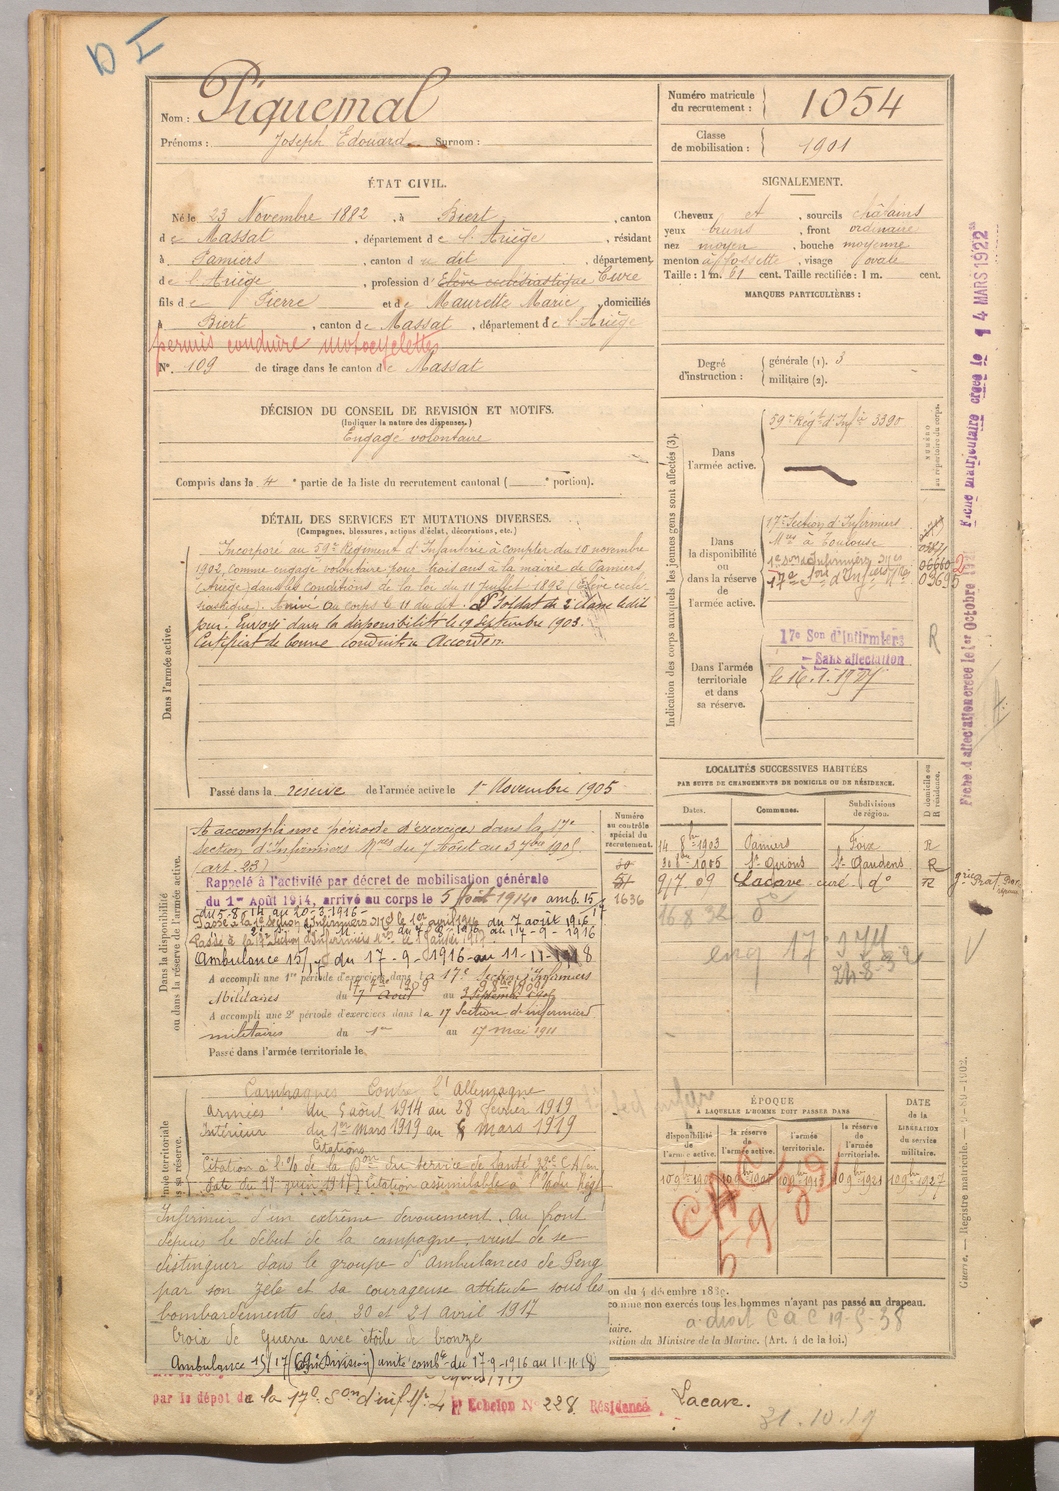 D I
Nom : Piquemal
Prénoms : Joseph Edouard Surnom :
Numéro matricule du recrutement : 1054
Classe de mobilisation : 1901
ÉTAT CIVIL.
Né le 23 Novembre 1882, à Biert, canton
de Massat, département de l'Ariège, résidant
à Pamiers, canton du dit, département
de l'Ariège, profession d'Elève ecclésiastique Curé
fils de Pierre et de Maurette Marie, domiciliés
à Biert, canton de Massat, département de l'Ariège
permis conduire motocyclettes
N°. 109 de tirage dans le canton de Massat
SIGNALEMENT.
Cheveux et, sourcils châtains
yeux bruns, front ordinaire
nez moyen, bouche moyenne
menton à fossette, visage ovale
Taille : 1 m. 61 cent. Taille rectifiée : 1 m. cent.
MARQUES PARTICULIÈRES :
Degré d'instruction : générale (1). 3
militaire (2).
DÉCISION DU CONSEIL DE REVISION ET MOTIFS.
(Indiquer la nature des dispenses.)
Engagé volontaire
Compris dans la 4e partie de la liste du recrutement cantonal ( e portion).
DÉTAIL DES SERVICES ET MUTATIONS DIVERSES.
(Campagnes, blessures, actions d'éclat, décorations, etc.)
Dans l'armée active.
Incorporé au 59e Régiment d'Infanterie à compter du 10 novembre
1902, comme engagé volontaire pour trois ans à la mairie de Pamiers
(Ariège) dans les conditions de la loi du 11 Juillet 1892 (Elève ecclé-
siastique). Arrivé au corps le 11 du dit. Soldat de 2e classe le dit
jour. Envoyé dans la disponibilité le 19 septembre 1903.
Certificat de bonne conduite Accordé.
Passé dans la réserve de l'armée active le 1er Novembre 1905
Indication des corps auxquels les jeunes gens sont affectés (3).
Dans l'armée active.
59e Régt d'Infie 3390
NUMÉRO au répertoire du corps.
Dans la disponibilité ou dans la réserve de l'armée active.
17e Section d'Infirmiers
Mres à Toulouse
Dans l'armée territoriale et dans sa réserve.
17e Son d'Infirmiers
Sans affectation
le 16.1.1927
R
Fiche matriculaire créée le 14 MARS 1922
Fiche d'affectation créée le 1er Octobre
Dans la disponibilité ou dans la réserve de l'armée active.
A accompli une période d'exercices dans la 17e
Section d'Infirmiers Mres du 7 Août au 3 7bre 1905
(art. 23)
Rappelé à l'activité par décret de mobilisation générale
du 1er Août 1914, arrivé au corps le 5 Août 1914. amb. 15/17
du 5-8-14 au 20-3-1916
Ambulance 15/17 du 17-9-1916 au 11-11-1918
A accompli une 1re période d'exercices dans la 17e Section d'Infirmiers
Militaires du 7 Août au 3 Septembre
A accompli une 2e période d'exercices dans la 17 Section d'infirmiers
militaires du 1er au 17 mai 1911
Passé dans l'armée territoriale le
Numéro au contrôle spécial du recrutement.
1636
LOCALITÉS SUCCESSIVES HABITÉES
PAR SUITE DE CHANGEMENTS DE DOMICILE OU DE RÉSIDENCE.
Dates. Communes. Subdivisions de région. D domicile ou R résidence.
14 8bre 1903 Pamiers Foix R
30 8bre 1905 St Girons St Gaudens R
9/7 09 Lacave curé do R
16 8 32 do
Campagnes Contre l'Allemagne
Armées du 5 août 1914 au 28 février 1919
Intérieur du 1er Mars 1919 au 6 Mars 1919
Citations
date du 17 juin 1917) Citation assimilable à l'Ordre Régt
Infirmier d'un extrême dévouement. Au front
depuis le début de la campagne, vient de se
distinguer dans le groupe d'Ambulances de Peng
par son zèle et sa courageuse attitude sous les
bombardements des 20 et 21 Avril 1917
Croix de Guerre avec étoile de bronze
Ambulance 15/17 unité combte du 17-9-1916 au 11-11-18
par le dépôt de la 17e Son d'inf Mre Echelon N° 228 Résidence Lacave.
31.10.19
ÉPOQUE
À LAQUELLE L'HOMME DOIT PASSER DANS
la disponibilité de l'armée active. la réserve de l'armée active. l'armée territoriale. la réserve de l'armée territoriale. DATE de la LIBÉRATION du service militaire.
CAC
on du 4 décembre 1889.
comme non exercés tous les hommes n'ayant pas passé au drapeau.
iaire.
sition du Ministre de la Marine. (Art. 4 de la loi.)
a droit CAC 19-5-38
Guerre. — Registre matricule. — 2-80-1902.